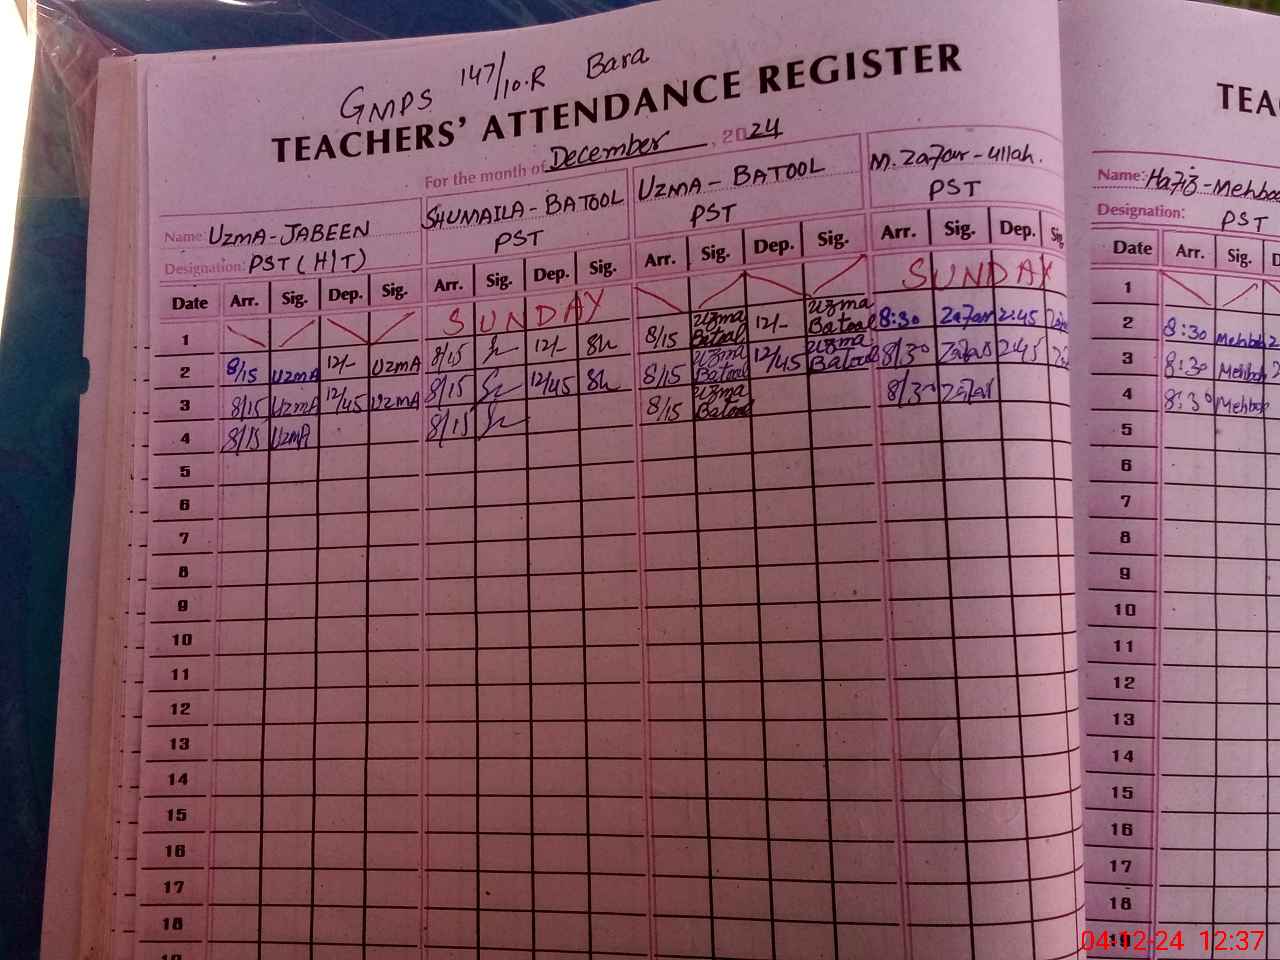 GMPS 147/10.R Bara
TEACHERS' ATTENDANCE REGISTER
For the month of December, 2024
Name: UZMA-JABEEN SHUMAILA-BATOOL UZMA-BATOOL M. Zafar-ullah.
Designation: PST (H/T) PST PST PST
Date Arr. Sig. Dep. Sig. Arr. Sig. Dep. Sig. Arr. Sig. Dep. Sig. Arr. Sig. Dep. Sig.
1 SUNDAY SUNDAY
2 8/15 UzmA 12/- UzmA 8/15 12/- Sh 8/15 Uzma Batool 12/- Uzma Batool 8:30 Zafar 2:45
3 8/15 UzmA 12/45 UzmA 8/15 12/45 Sh 8/15 Uzma Batool 12/45 Uzma Batool 8/30 Zafar 2:45
4 8/15 UzmA 8/15 8/15 Uzma Batool 8/30 Zafar
5
6
7
8
9
10
11
12
13
14
15
16
17
18
TEA
Name: Hafiz-Mehboo
Designation: PST
Date Arr. Sig. D
1
2 8:30 Mehbob 2
3 8:30 Mehbob 2
4 8:30 Mehbob
5
6
7
8
9
10
11
12
13
14
15
16
17
18
19
04-12-24 12:37